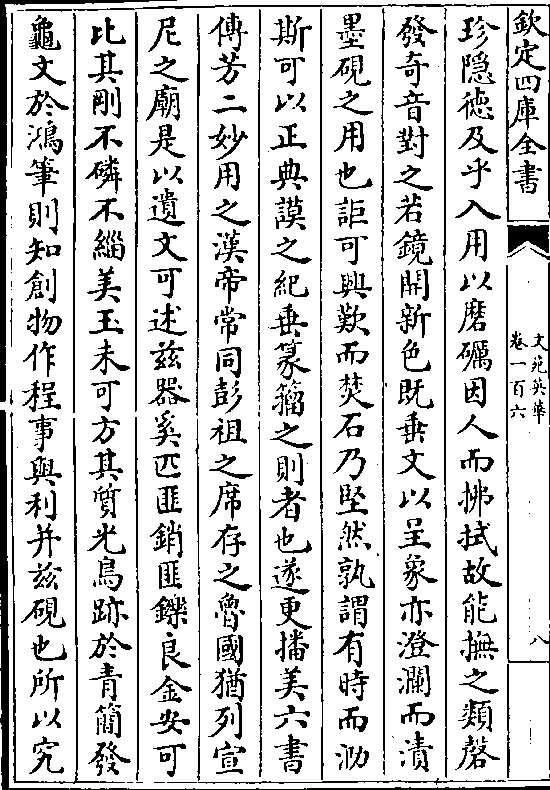 欽定四庫全書
文苑英華
卷一百六
八
珍隠徳及乎入用以磨礪因人而拂拭故能撫之類磬
發奇音對之若鏡開新色既垂文以呈象亦澄瀾而漬
墨硯之用也詎可興歎而焚石乃堅然孰謂有時而泐
斯可以正典謨之紀垂篆籕之則者也遂更播美六書
傳芳二妙用之漢帝常同彭祖之席存之魯國猶列宣
尼之廟是以遺文可述兹器奚匹匪銷匪鑠良金安可
比其剛不磷不緇美玉未可方其質光鳥跡於青簡發
龜文於鴻筆則知創物作程事興利并兹硯也所以究